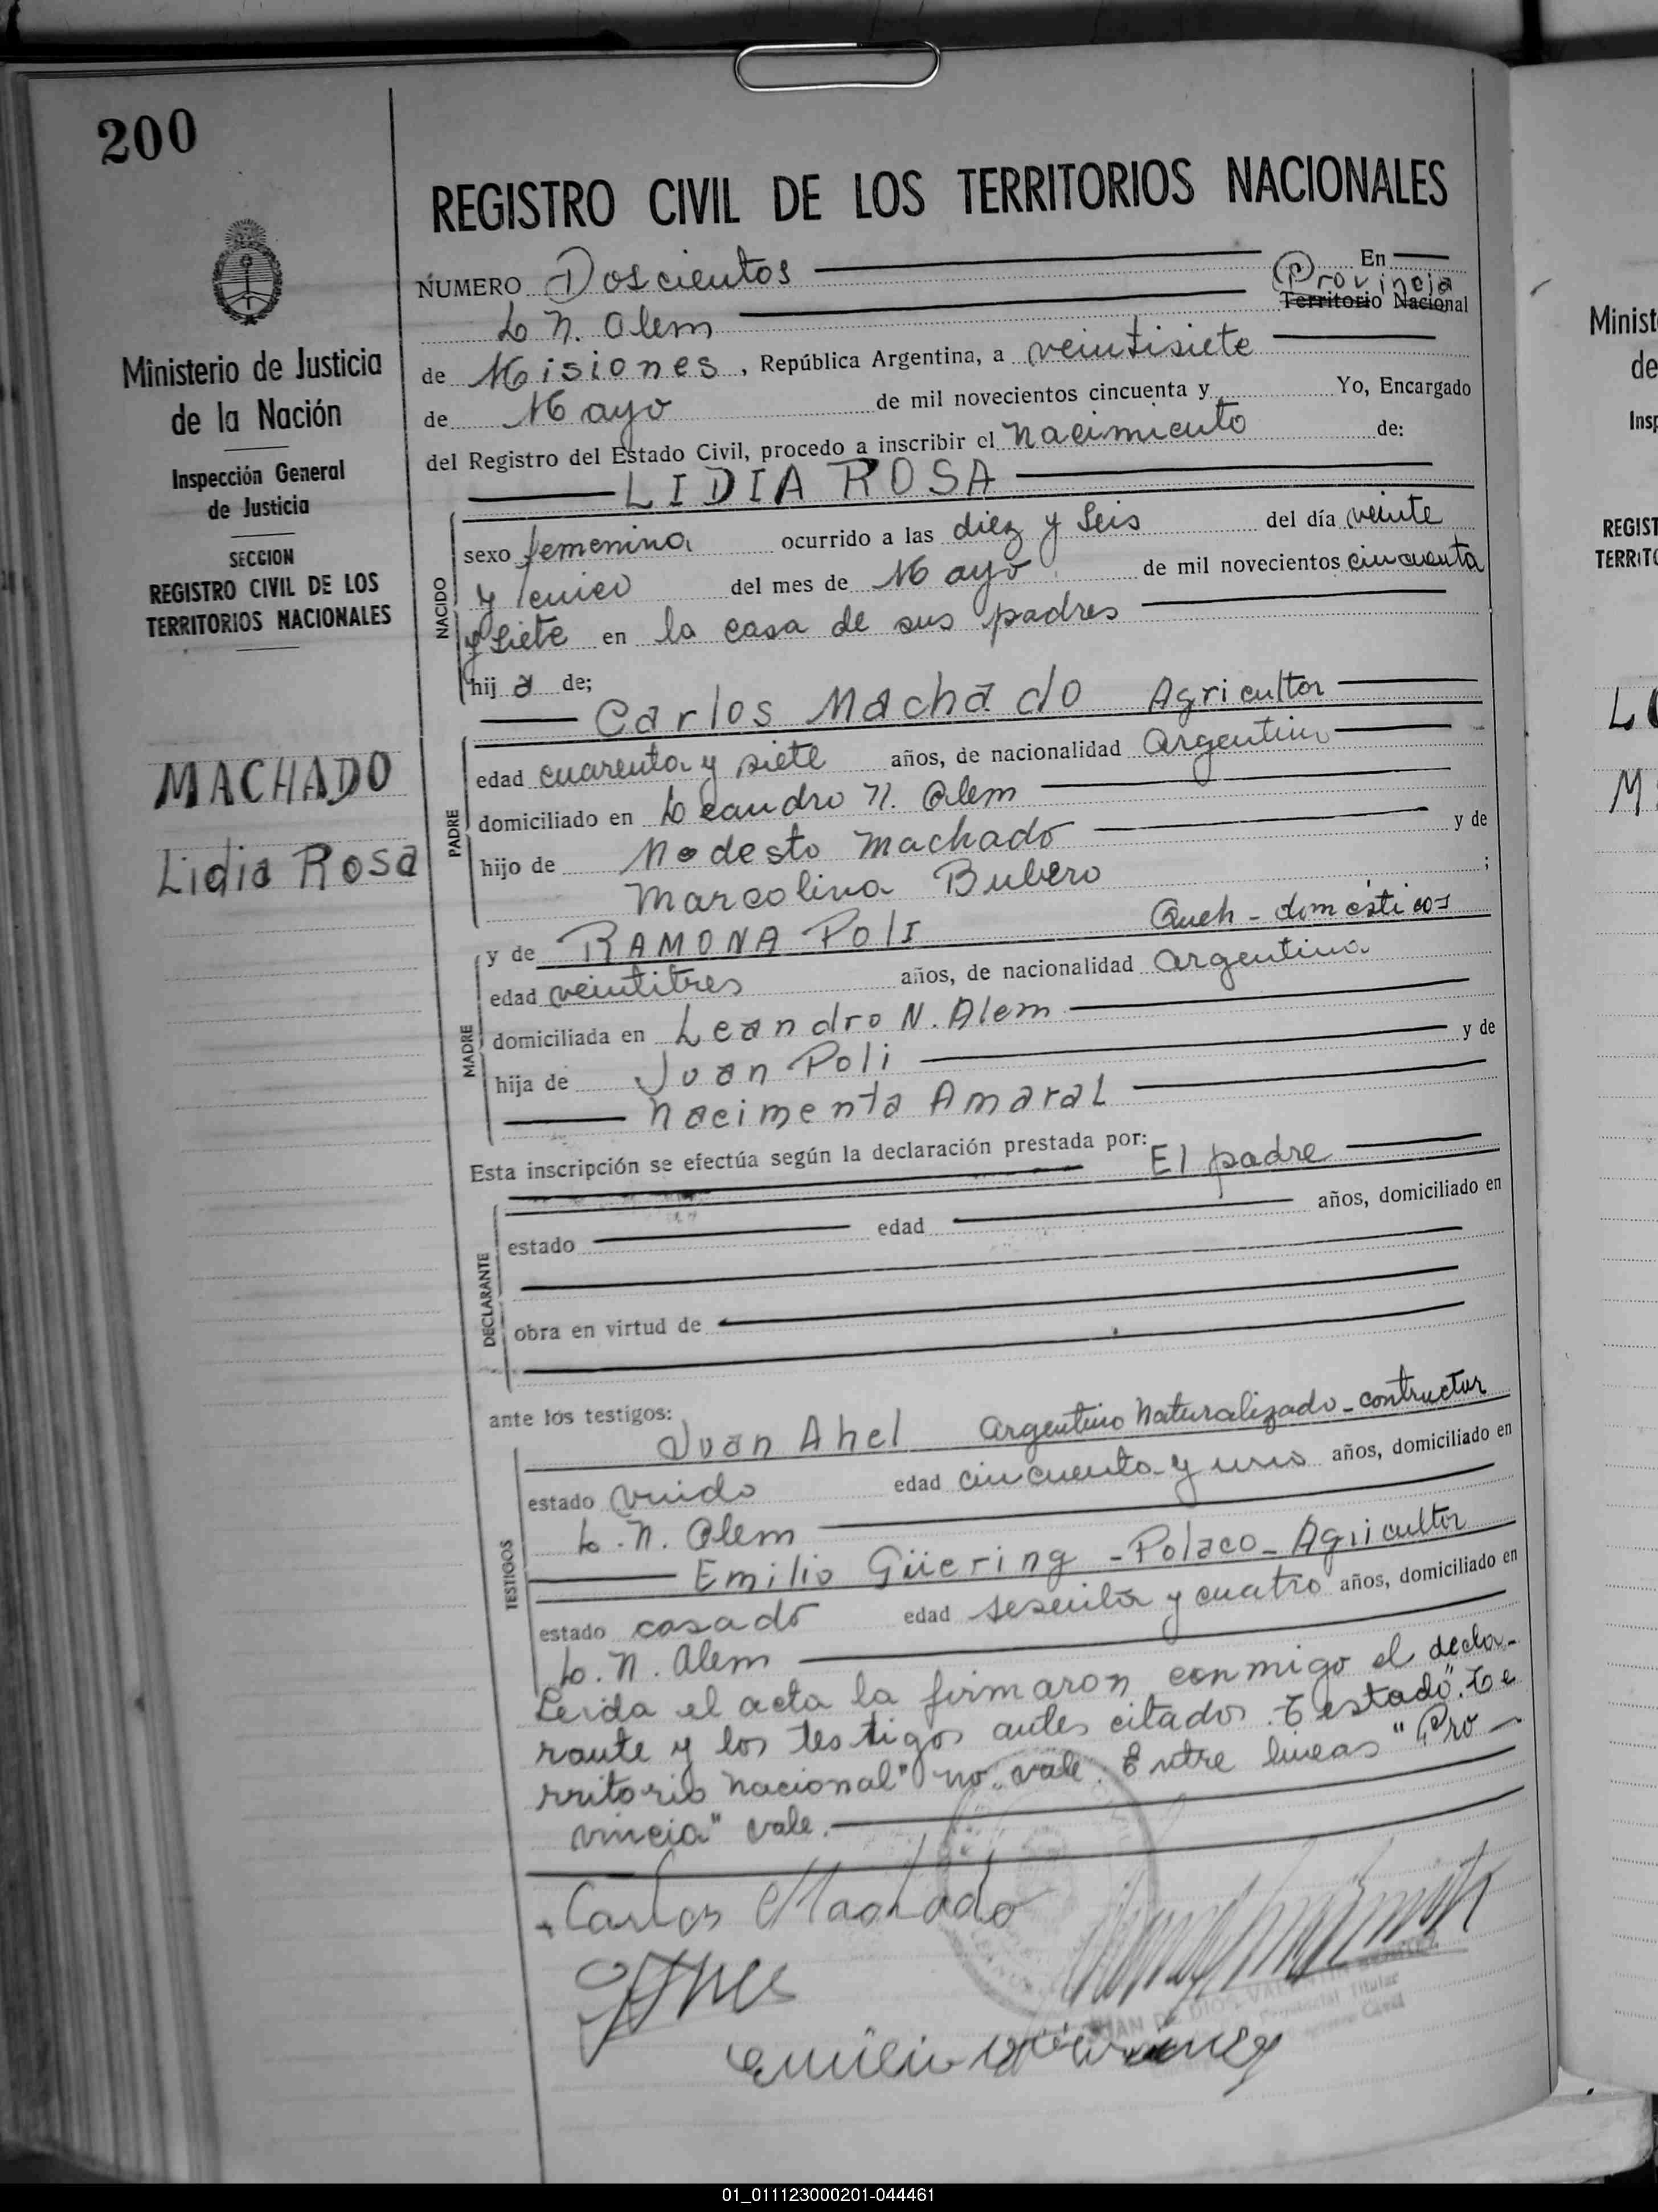 200
Ministerio de Justicia
de la Nación
Inspección General
de Justicia
SECCION
REGISTRO CIVIL DE LOS
TERRITORIOS NACIONALES
MACHADO
Lidia Rosa
REGISTRO CIVIL DE LOS TERRITORIOS NACIONALES
NÚMERO Doscientos En
Provincia
L N. Alem Territorio Nacional
de Misiones, República Argentina, a veintisiete
de Mayo de mil novecientos cincuenta y Yo, Encargado
del Registro del Estado Civil, procedo a inscribir el nacimiento de:
LIDIA ROSA
NACIDO
sexo femenina ocurrido a las diez y seis del día veinte
y del mes de Mayo de mil novecientos cincuenta
y siete en la casa de sus padres
hij a de;
Carlos Machado Agricultor
PADRE
edad cuarenta y siete años, de nacionalidad Argentino
domiciliado en Leandro N. Alem
hijo de Modesto Machado y de
Marcolina Bubero ;
y de RAMONA POLI Queh - domésticos
MADRE
edad veintitres años, de nacionalidad argentina
domiciliada en Leandro N. Alem
hija de Juan Poli y de
Nacimenta Amaral
Esta inscripción se efectúa según la declaración prestada por: El padre
DECLARANTE
estado edad años, domiciliado en
obra en virtud de
ante los testigos:
Juan Ahel Argentino Naturalizado - contructor
TESTIGOS
estado viudo edad cincuenta y uno años, domiciliado en
L. N. Alem
Emilio Güering - Polaco - Agricultor
estado casado edad sesenta y cuatro años, domiciliado en
L. N. Alem
Leida el acta la firmaron conmigo el decla-
rante y los testigos antes citados. Testado: "Te
rritorio Nacional" no vale. Entre lineas "Pro-
vincia" vale.
Carlos Machado
JUAN DE DIOS
Titular
Civil
Minist
de
Insp
REGIST
TERRITO
01_011123000201-044461